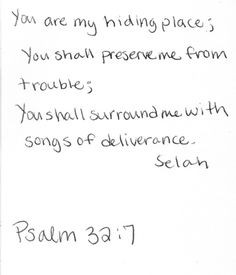 You are my hiding place;
You shall preserve me from
trouble;
You shall surround me with
songs of deliverance.
Selah
Psalm 32:7